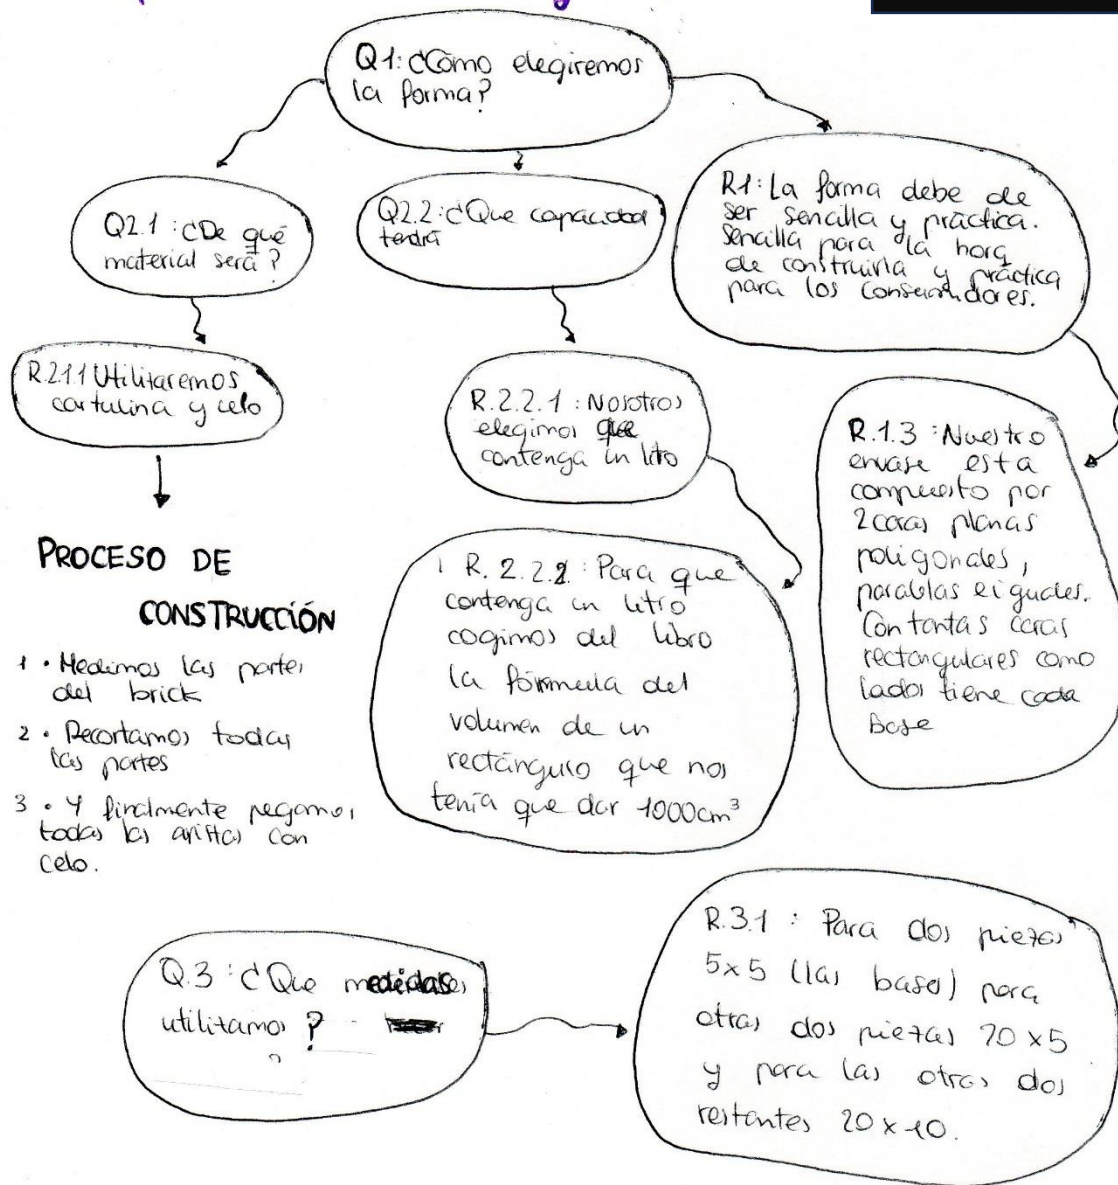 Q1: ¿Cómo elegiremos
la forma?
Q2.1: ¿De qué
material será?
Q2.2: ¿Que capacidad
tendrá
R1: La forma debe de
ser sencilla y práctica.
Sencilla para la hora
de construirla y práctica
para los consumidores.
R.2.1.1 Utilitaremos
cartulina y celo
R.2.2.1: Nosotros
elegimos que
contenga un litro
R.1.3: Nuestro
envase esta
compuesto por
2 caras planas
poligonales,
paralelas e iguales.
Con tantas caras
rectangulares como
lados tiene cada
Base
PROCESO DE
CONSTRUCCIÓN
1 • Medimos las partes
del brick
2 • Recortamos todas
las partes
3 • Y finalmente pegamos
todas las aristas con
celo.
R. 2.2.2: Para que
contenga un litro
cogimos del libro
la fórmula del
volumen de un
rectángulo que nos
tenía que dar 1000cm³
Q.3: ¿Que medidas
utilizamos?
R.3.1: Para dos piezas
5x5 (las bases) para
otras dos piezas 20x5
y para las otras dos
restantes 20x10.